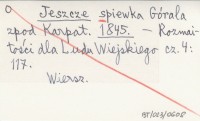 Jeszcze spiewka Górala
zpod Karpat. 1845. — Rozmai-
tości dla Ludu Wiejskiego cz. 4:
117.
Wiersz.